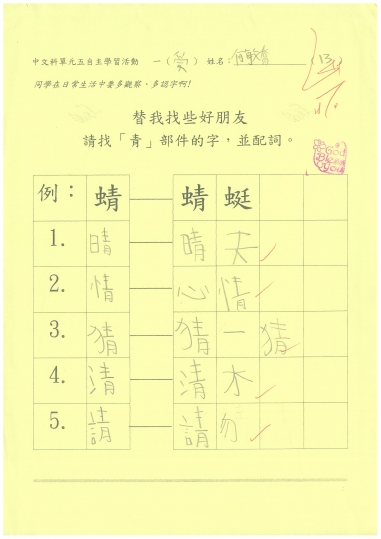 中文科單元五自主學習活動 一(愛) 姓名:
同學在日常生活中要多觀察,多認字啊!
替我找些好朋友
請找「青」部件的字,並配詞。
例: 蜻 蜻蜓
1. 晴 晴天
2. 情 心情
3. 猜 猜一猜
4. 清 清水
5. 請 請勿